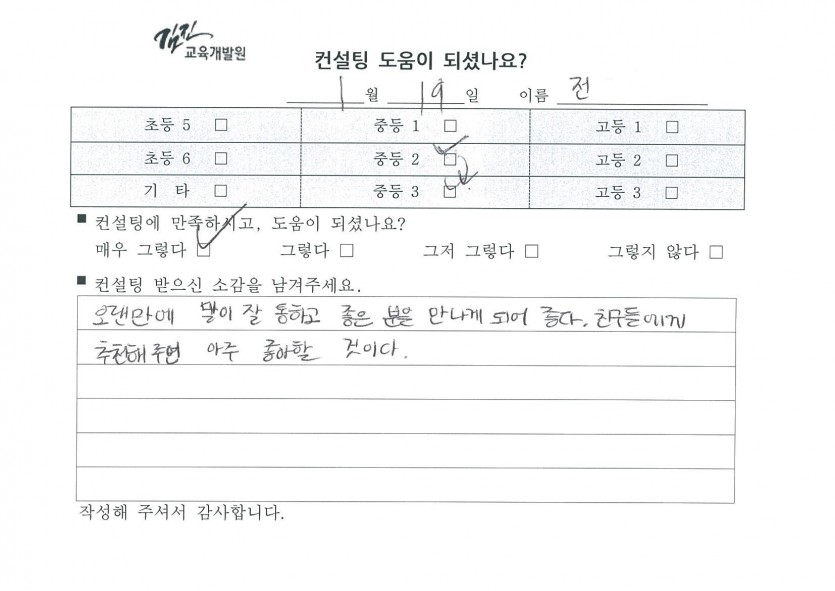 김진
교육개발원
컨설팅 도움이 되셨나요?
1 월 19 일 이름 전
초등 5 □ 중등 1 □ 고등 1 □
초등 6 □ 중등 2 □ 고등 2 □
기 타 □ 중등 3 □ 고등 3 □
■ 컨설팅에 만족하시고, 도움이 되셨나요?
매우 그렇다 □ 그렇다 □ 그저 그렇다 □ 그렇지 않다 □
■ 컨설팅 받으신 소감을 남겨주세요.
오랜만에 말이 잘 통하고 좋은 분을 만나게 되어 좋다. 친구들에게
추천해주면 아주 좋아할 것이다.
작성해 주셔서 감사합니다.